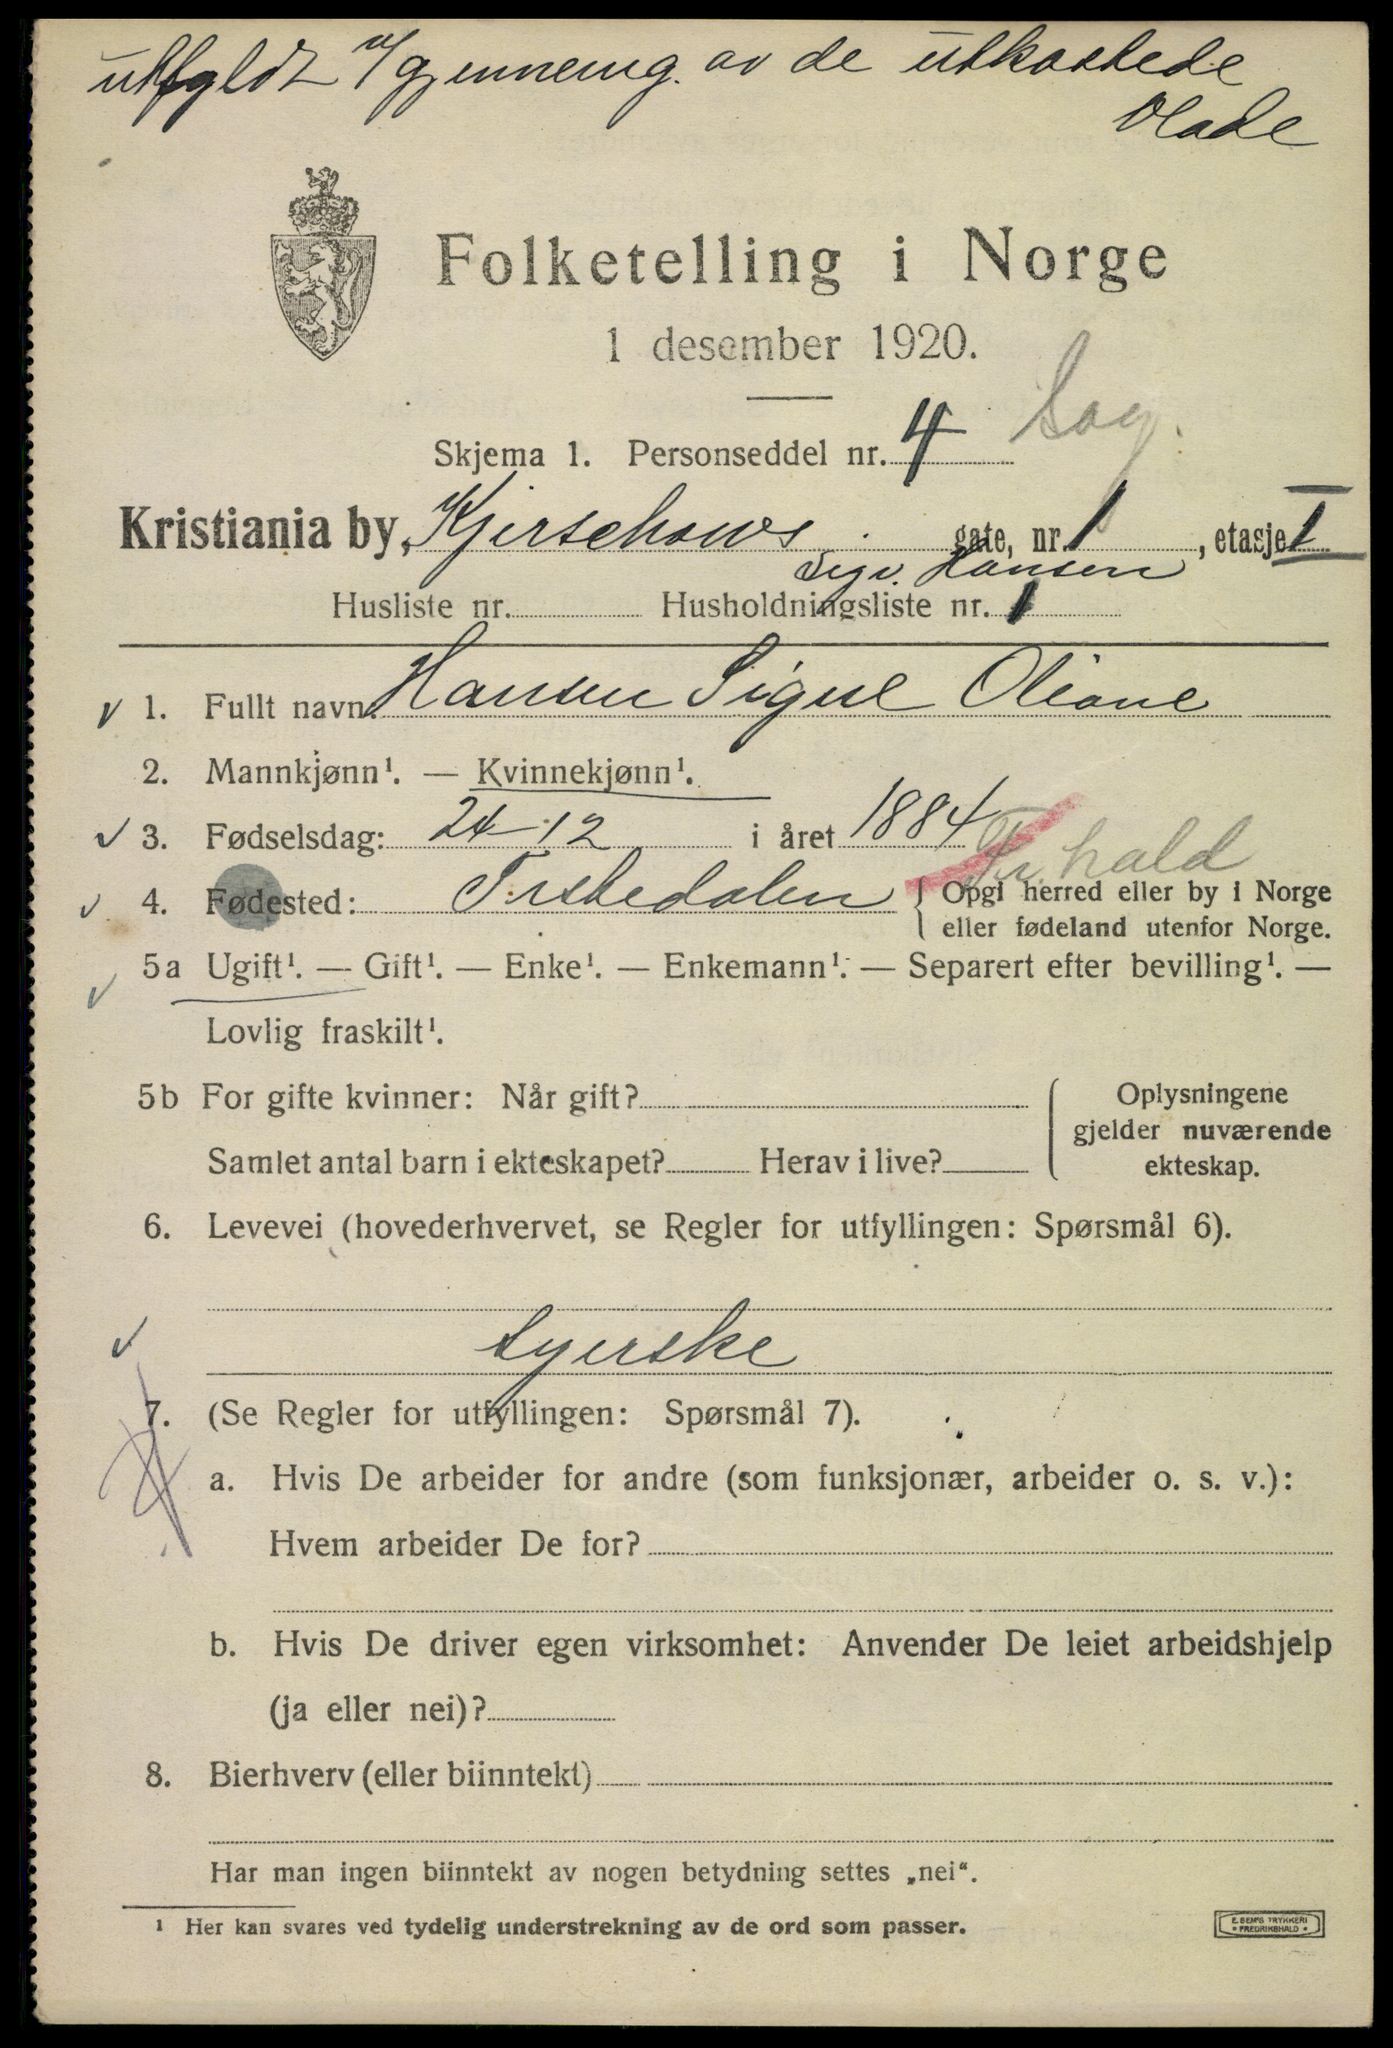 utfyldt v/ gjennemg. av de utkastede
Folketelling i Norge
1 desember 1920.
Skjema 1. Personseddel nr. 4
Kristiania by, Kjerschows gate, nr. 1, etasje I
Sigv. Hansen
Husliste nr. Husholdningsliste nr. 1
1. Fullt navn: Hansen Signe Oliane
2. Mannkjønn¹. — Kvinnekjønn¹.
3. Fødselsdag: 24-12 i året 1884
Fr.hald
4. Fødested: Tistedalen { Opgi herred eller by i Norge
eller fødeland utenfor Norge.
5a Ugift¹. — Gift¹. — Enke¹. — Enkemann¹. — Separert efter bevilling¹. —
Lovlig fraskilt¹.
5b For gifte kvinner: Når gift? Oplysningene
gjelder nuværende
Samlet antal barn i ekteskapet? Herav i live? ekteskap.
6. Levevei (hovederhvervet, se Regler for utfyllingen: Spørsmål 6).
Syerske
7. (Se Regler for utfyllingen: Spørsmål 7).
a. Hvis De arbeider for andre (som funksjonær, arbeider o. s. v.):
Hvem arbeider De for?
b. Hvis De driver egen virksomhet: Anvender De leiet arbeidshjelp
(ja eller nei)?
8. Bierhverv (eller biinntekt)
Har man ingen biinntekt av nogen betydning settes „nei“.
¹ Her kan svares ved tydelig understrekning av de ord som passer.
E. SEM'S TRYKKERI
• FREDRIKSHALD •